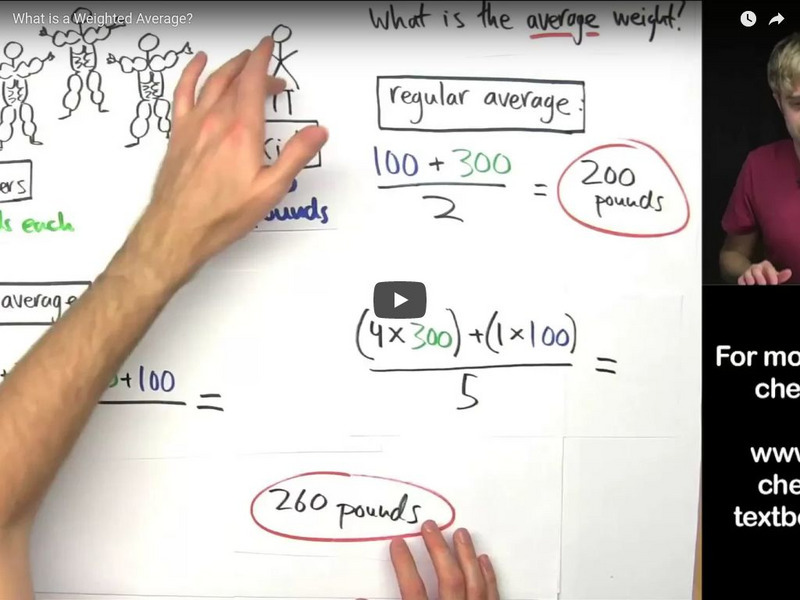 What is a Weighted Average?
What is the average weight?
regular average:
100 + 300
2
=
200
pounds
ers
s each
pounds
average
+100
=
(4×300)+(1×100)
5
=
260 pounds
For mo
che
www
che
textbo